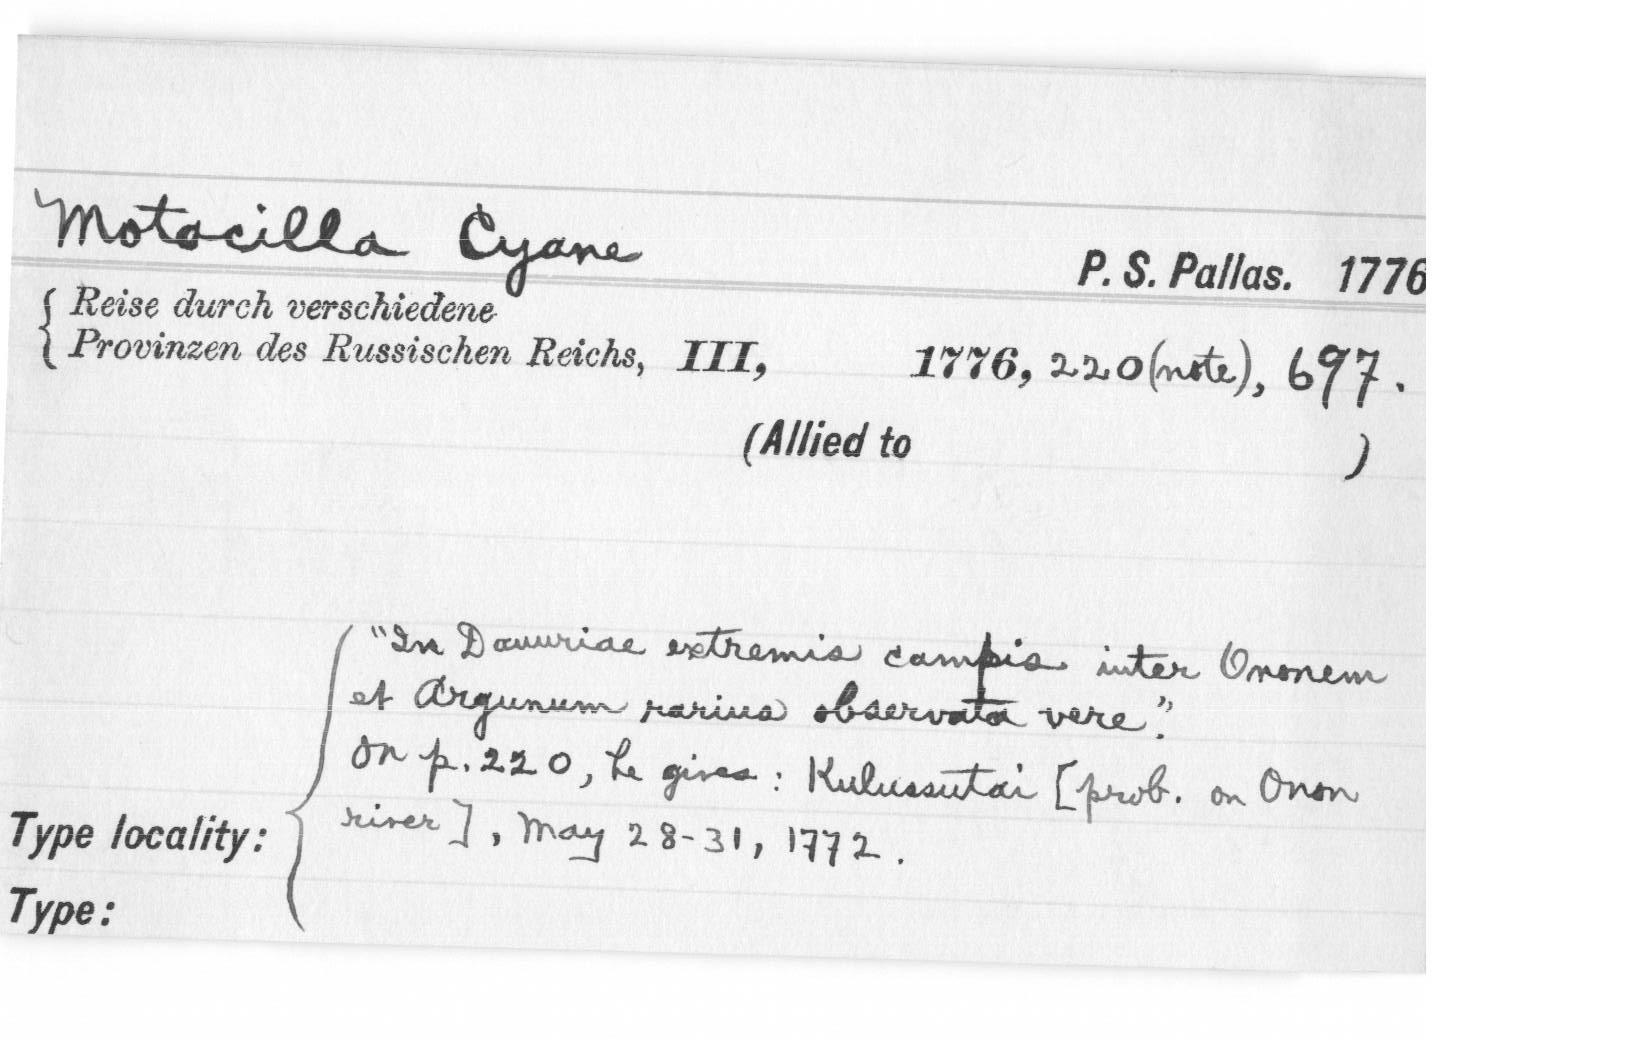 Motacilla Cyane
P. S. Pallas. 1776
Reise durch verschiedene
Provinzen des Russischen Reichs, III, 1776, 220 (note), 697.
(Allied to )
"In Dauuriae extremis campis inter Ononem
et Argunum rarius observata vere".
On p. 220, he gives: Kulussutai [prob. on Onon
river], May 28-31, 1772.
Type locality:
Type: